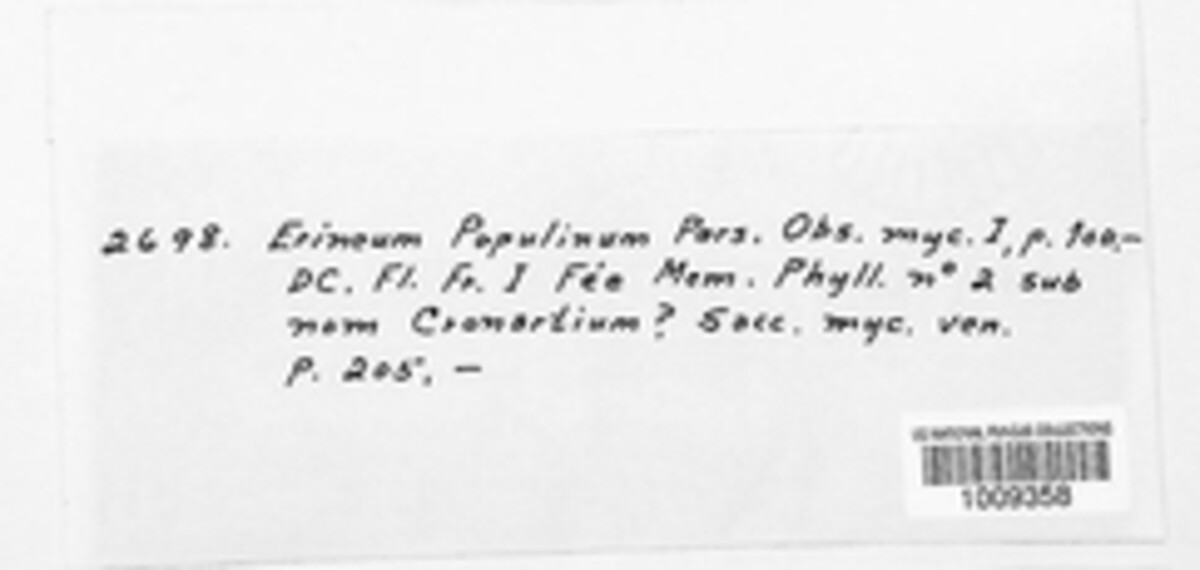 2698. Erineum Populinum Pers. Obs. myc. I, p. 100,—
DC. Fl. Fr. I Fée Mem. Phyll. n° 2 sub
nom Cronartium? Sacc. myc. ven.
p. 205, —
US NATIONAL FUNGUS COLLECTIONS
1009358